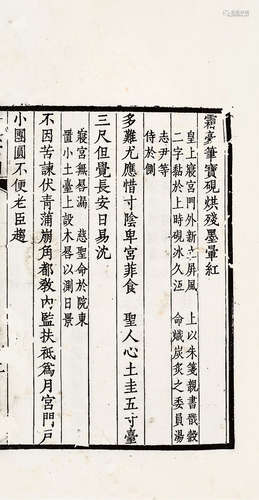 霜豪筆寶硯烘殘墨暈紅
皇上寢宮門外新立屏風　上以朱箋親書戩穀
二字黏於上時硯冰久沍　命熾炭炙之委員湯
志尹等
侍於側
多難尤應惜寸陰卑宮菲食　聖人心土圭五寸臺
三尺但覺長安日易沈
寢宮無晷漏　慈聖命於院東
置小土臺上設木晷以測日景
不因苦諫伏青蒲崩角都教內監扶祗爲月宮門戶
小團圓不便老臣趨